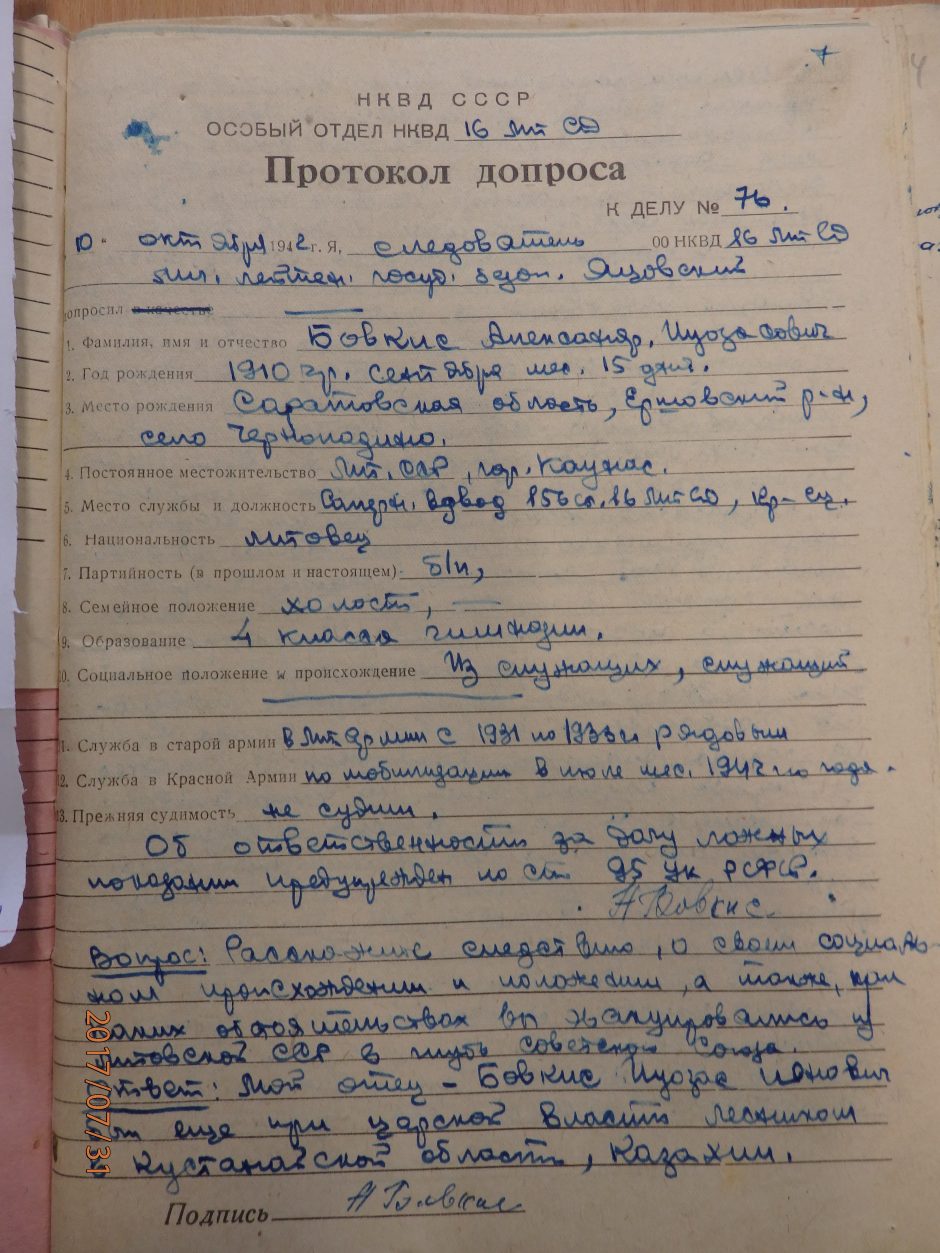 7
4
НКВД СССР
ОСОБЫЙ ОТДЕЛ НКВД 16 Лит СД
Протокол допроса
К ДЕЛУ № 76.
10 " октября 1942 г. Я, следователь ОО НКВД 16 Лит СД
мл. лейтен. госуд. безоп. Яцовский
допросил в качестве
1. Фамилия, имя и отчество Бовкис Александр, Иуозасович
2. Год рождения 1910 гр. сентября мес. 15 дня.
3. Место рождения Саратовская область, Ершовский р-н,
село Чернопадино.
4. Постоянное местожительство Лит. ССР, гор. Каунас.
5. Место службы и должность взвод 156 сп. 16 Лит СД, кр-ец.
6. Национальность литовец
7. Партийность (в прошлом и настоящем) б/п,
8. Семейное положение холост,
9. Образование 4 класса гимназии.
10. Социальное положение и происхождение Из служащих, служащий
11. Служба в старой армии в Лит армии с 1931 по 1933 г рядовым
12. Служба в Красной Армии по мобилизации в июле мес. 1942-го года.
13. Прежняя судимость не судим.
Об ответственности за дачу ложных
показании предупрежден по ст 95 УК РСФСР.
А Бовкис
Вопрос: Расскажите следствию, о своем социаль-
ном происхождении и положении, а также, при
каких обстоятельствах вы эвакуировались из
Литовской ССР в глубь советского Союза.
Ответ: Мой отец – Бовкис Иуозас Ионович
был еще при царской власти лесником
в Кустанайской области, Казахии.
Подпись А Бовкис
2017/07/31